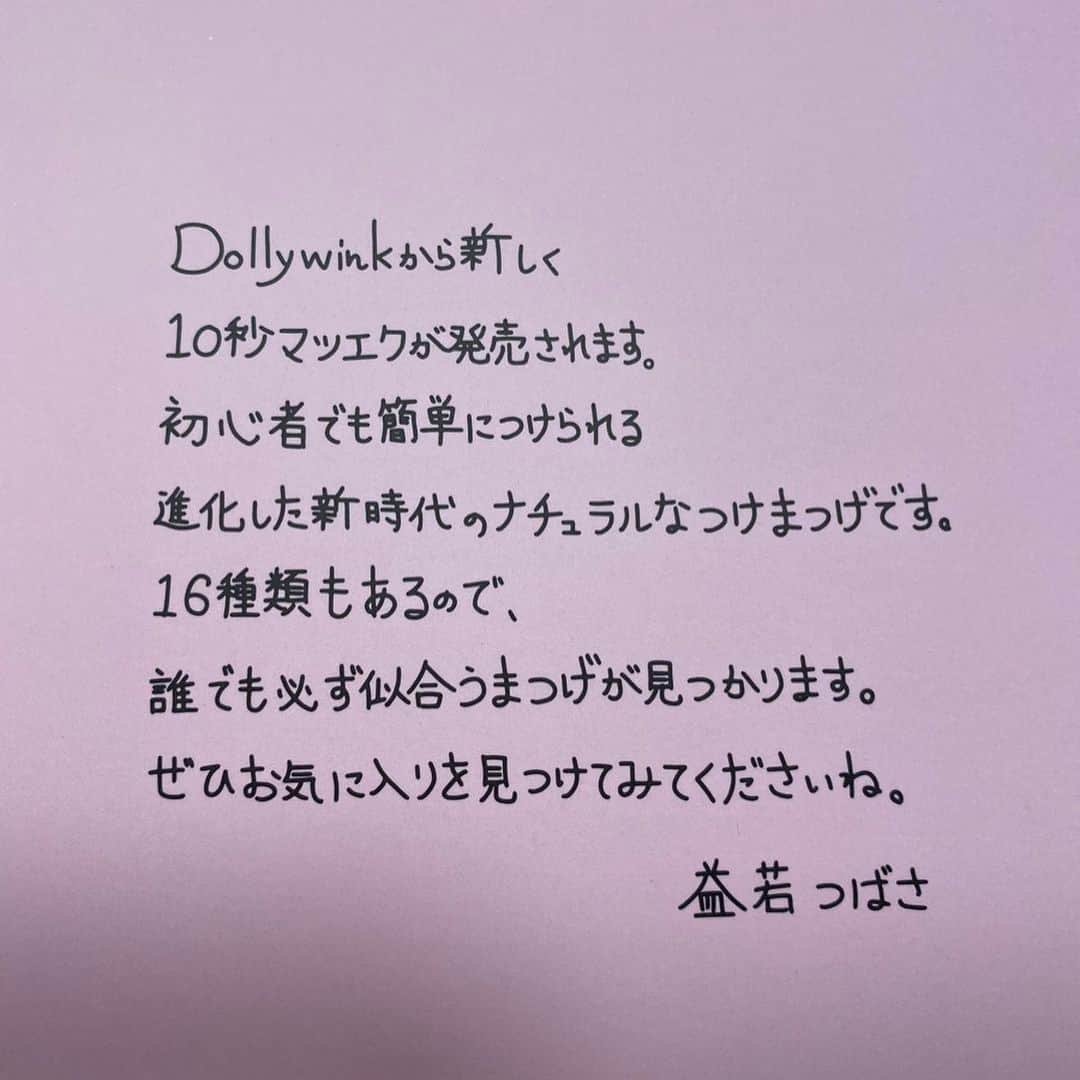 Dollywinkから新しく
10秒マツエクが発売されます。
初心者でも簡単につけられる
進化した新時代のナチュラルなつけまつげです。
16種類もあるので、
誰でも必ず似合うまつげが見つかります。
ぜひお気に入りを見つけてみてくださいね。
益若つばさ